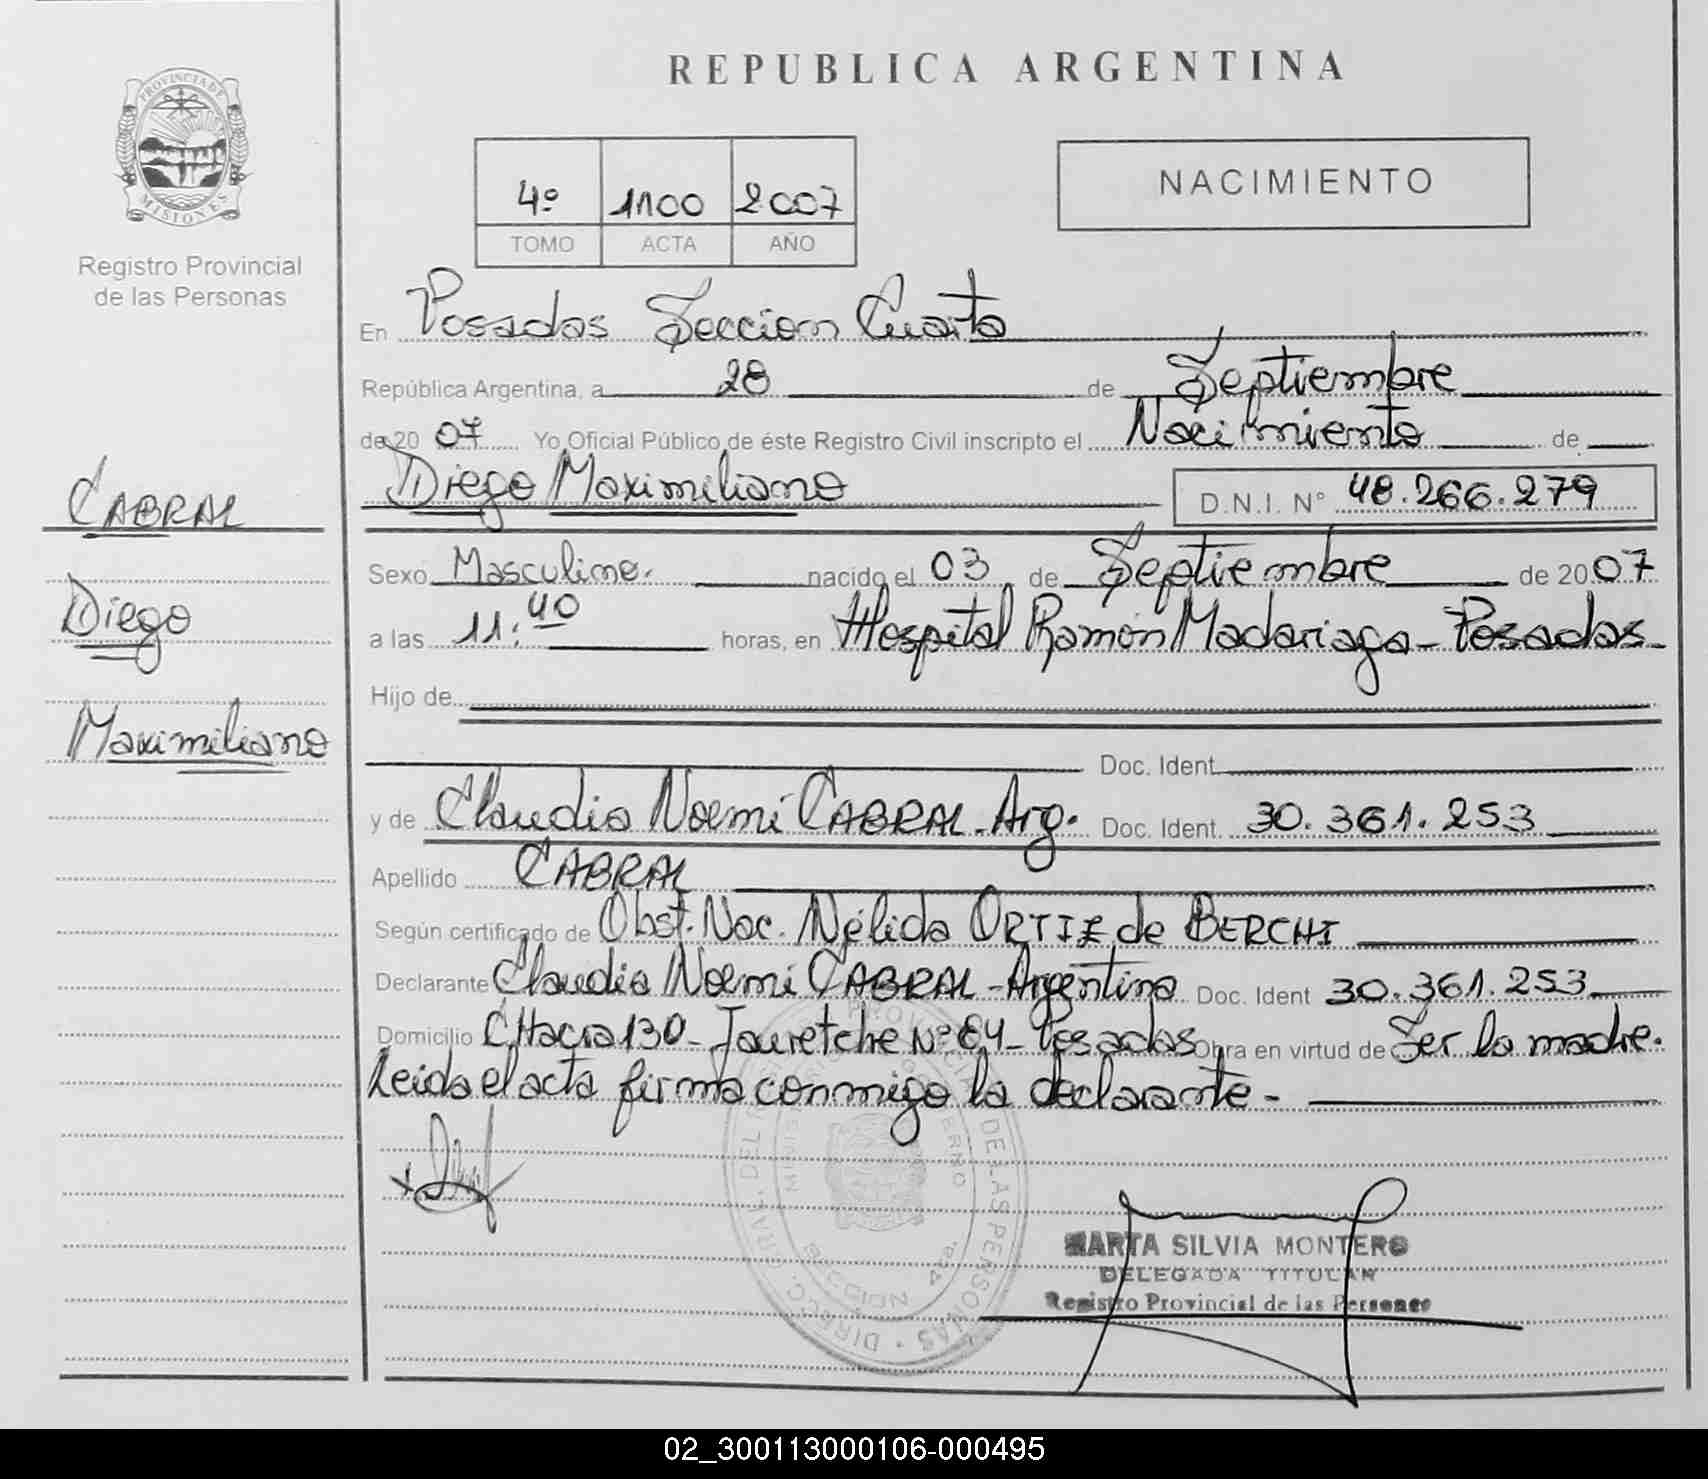 REPUBLICA ARGENTINA
PROVINCIA DE
MISIONES
Registro Provincial
de las Personas
4º 1100 2007
TOMO ACTA AÑO
NACIMIENTO
En Posadas Seccion Cuarta
República Argentina, a 28 de Septiembre
de 20 07 Yo Oficial Público de éste Registro Civil inscripto el Nacimiento de
CABRAL
Diego Maximiliano D.N.I. Nº 48.266.279
Sexo Masculino. nacido el 03 de Septiembre de 2007
Diego
a las 11:40 horas, en Hospital Ramón Madariaga - Posadas -
Hijo de
Maximiliano
Doc. Ident.
y de Claudia Noemí CABRAL - Arg. Doc. Ident. 30.361.253
Apellido CABRAL
Según certificado de Obst. Nac. Nélida ORTIZ de BERCHI
Declarante Claudia Noemí CABRAL - Argentina Doc. Ident 30.361.253
Domicilio CHacra 130 - Jauretche Nº 64 - Posadas Obra en virtud de Ser la madre.
Leida el acta firma conmigo la declarante -
MARTA SILVIA MONTERO
DELEGADA TITULAR
Registro Provincial de las Personas
02_300113000106-000495